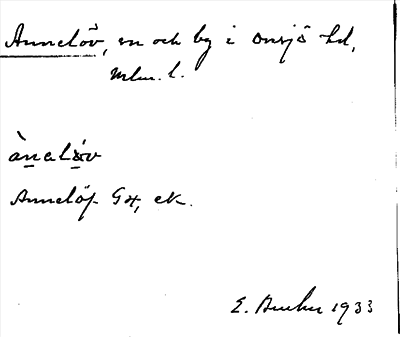 Annelöv, sn och by i Onsjö hd,
Mlm. l.
ànaløv
Annelöf Gx, ek.
E. 1933